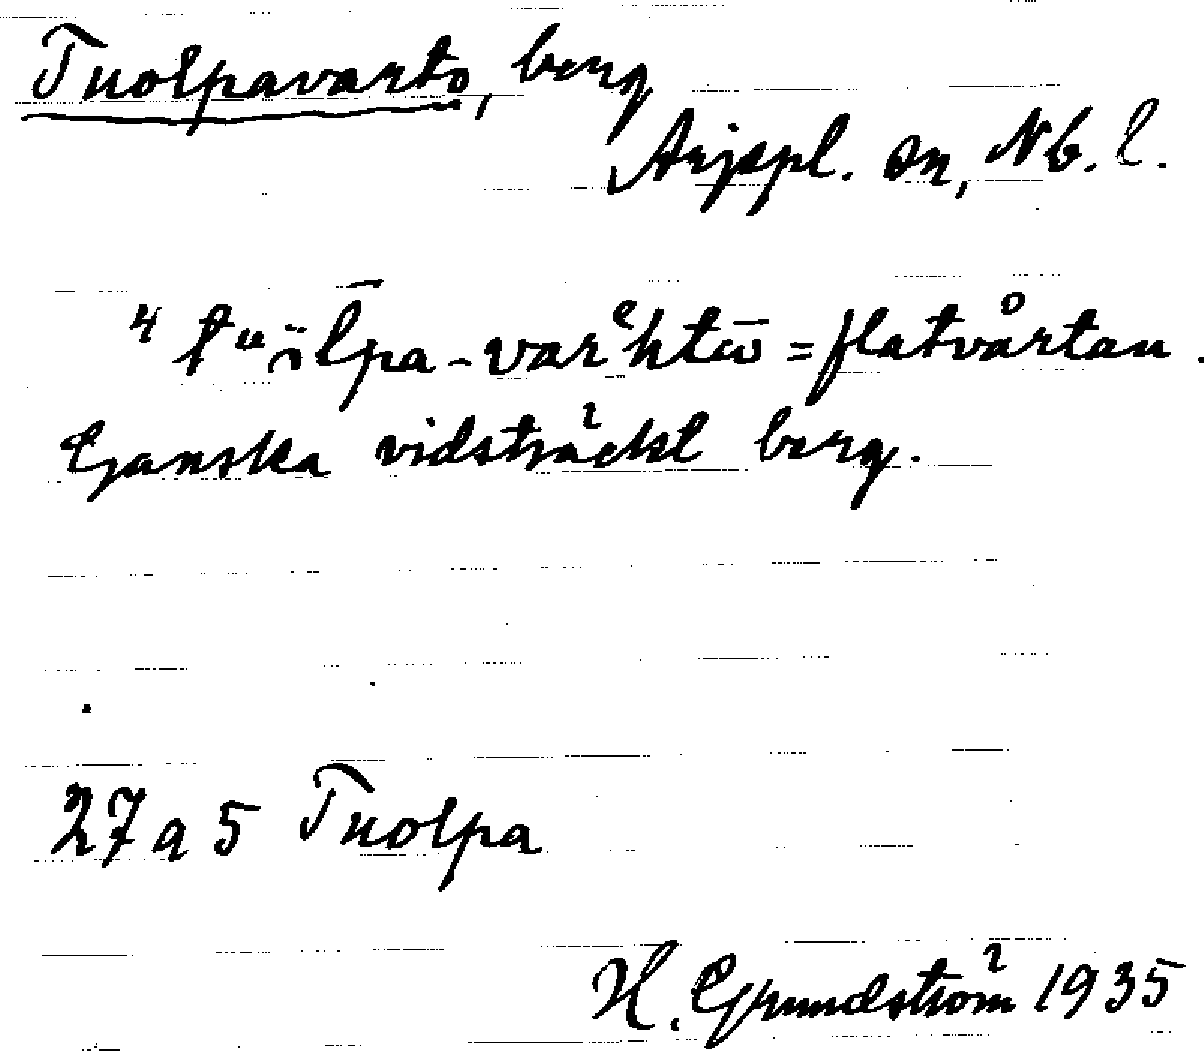 Tuolpavarto, berg
Arjepl. sn, Nb. l.
4 tᵘïl̄pa-varᵉhtω̄ = flatvårtan.
Ganska vidsträckt berg.
27 a 5 Tuolpa
H. Grundström 1935